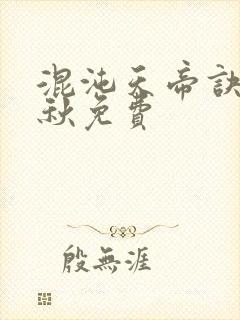 混沌天帝訣
秋免費
殷無涯